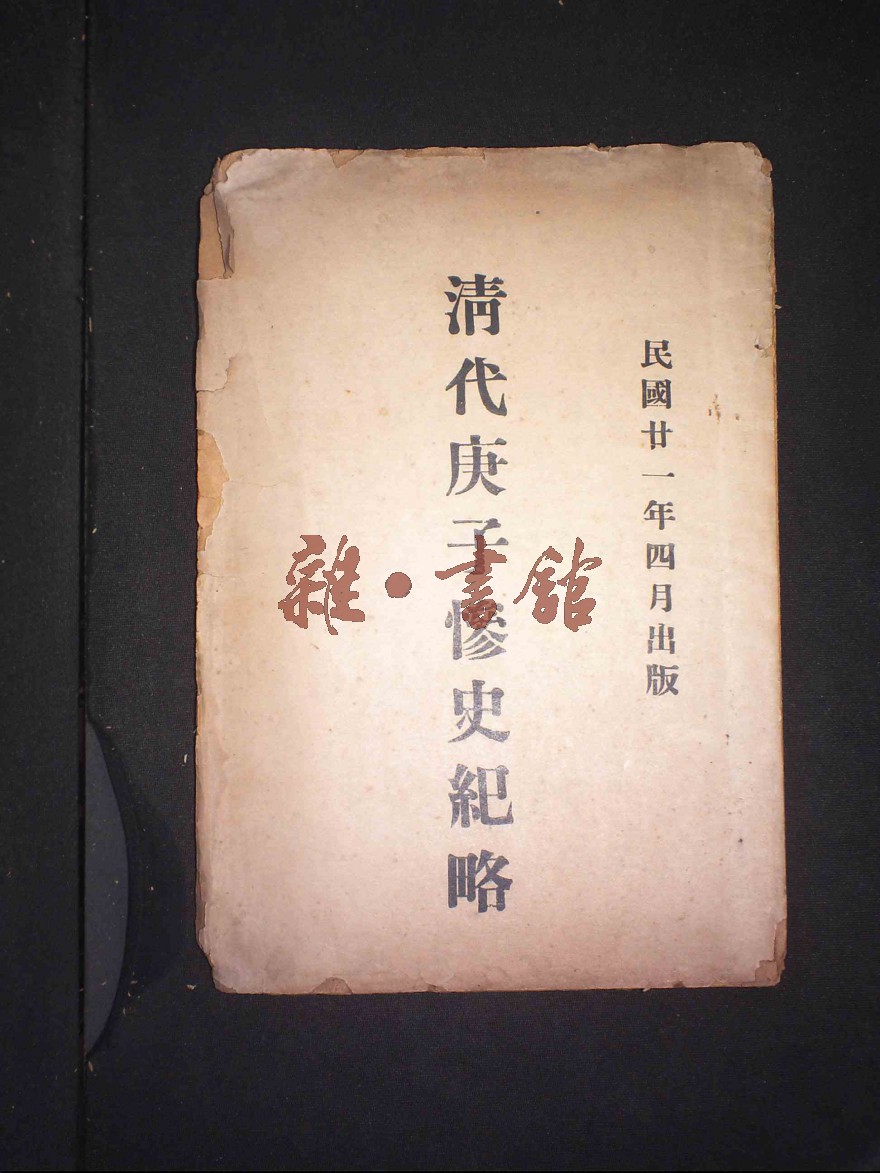 民國廿一年四月出版
清代庚子慘史紀略
雜·書館